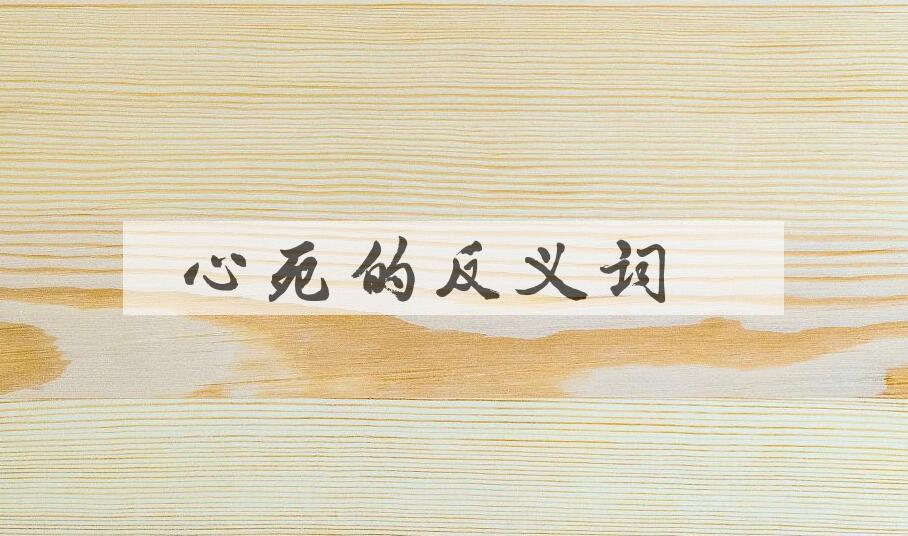 心死的反义词